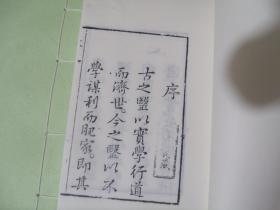 序
古之毉以實學行道
而濟世。今之毉以不
學謀利而肥家。即其